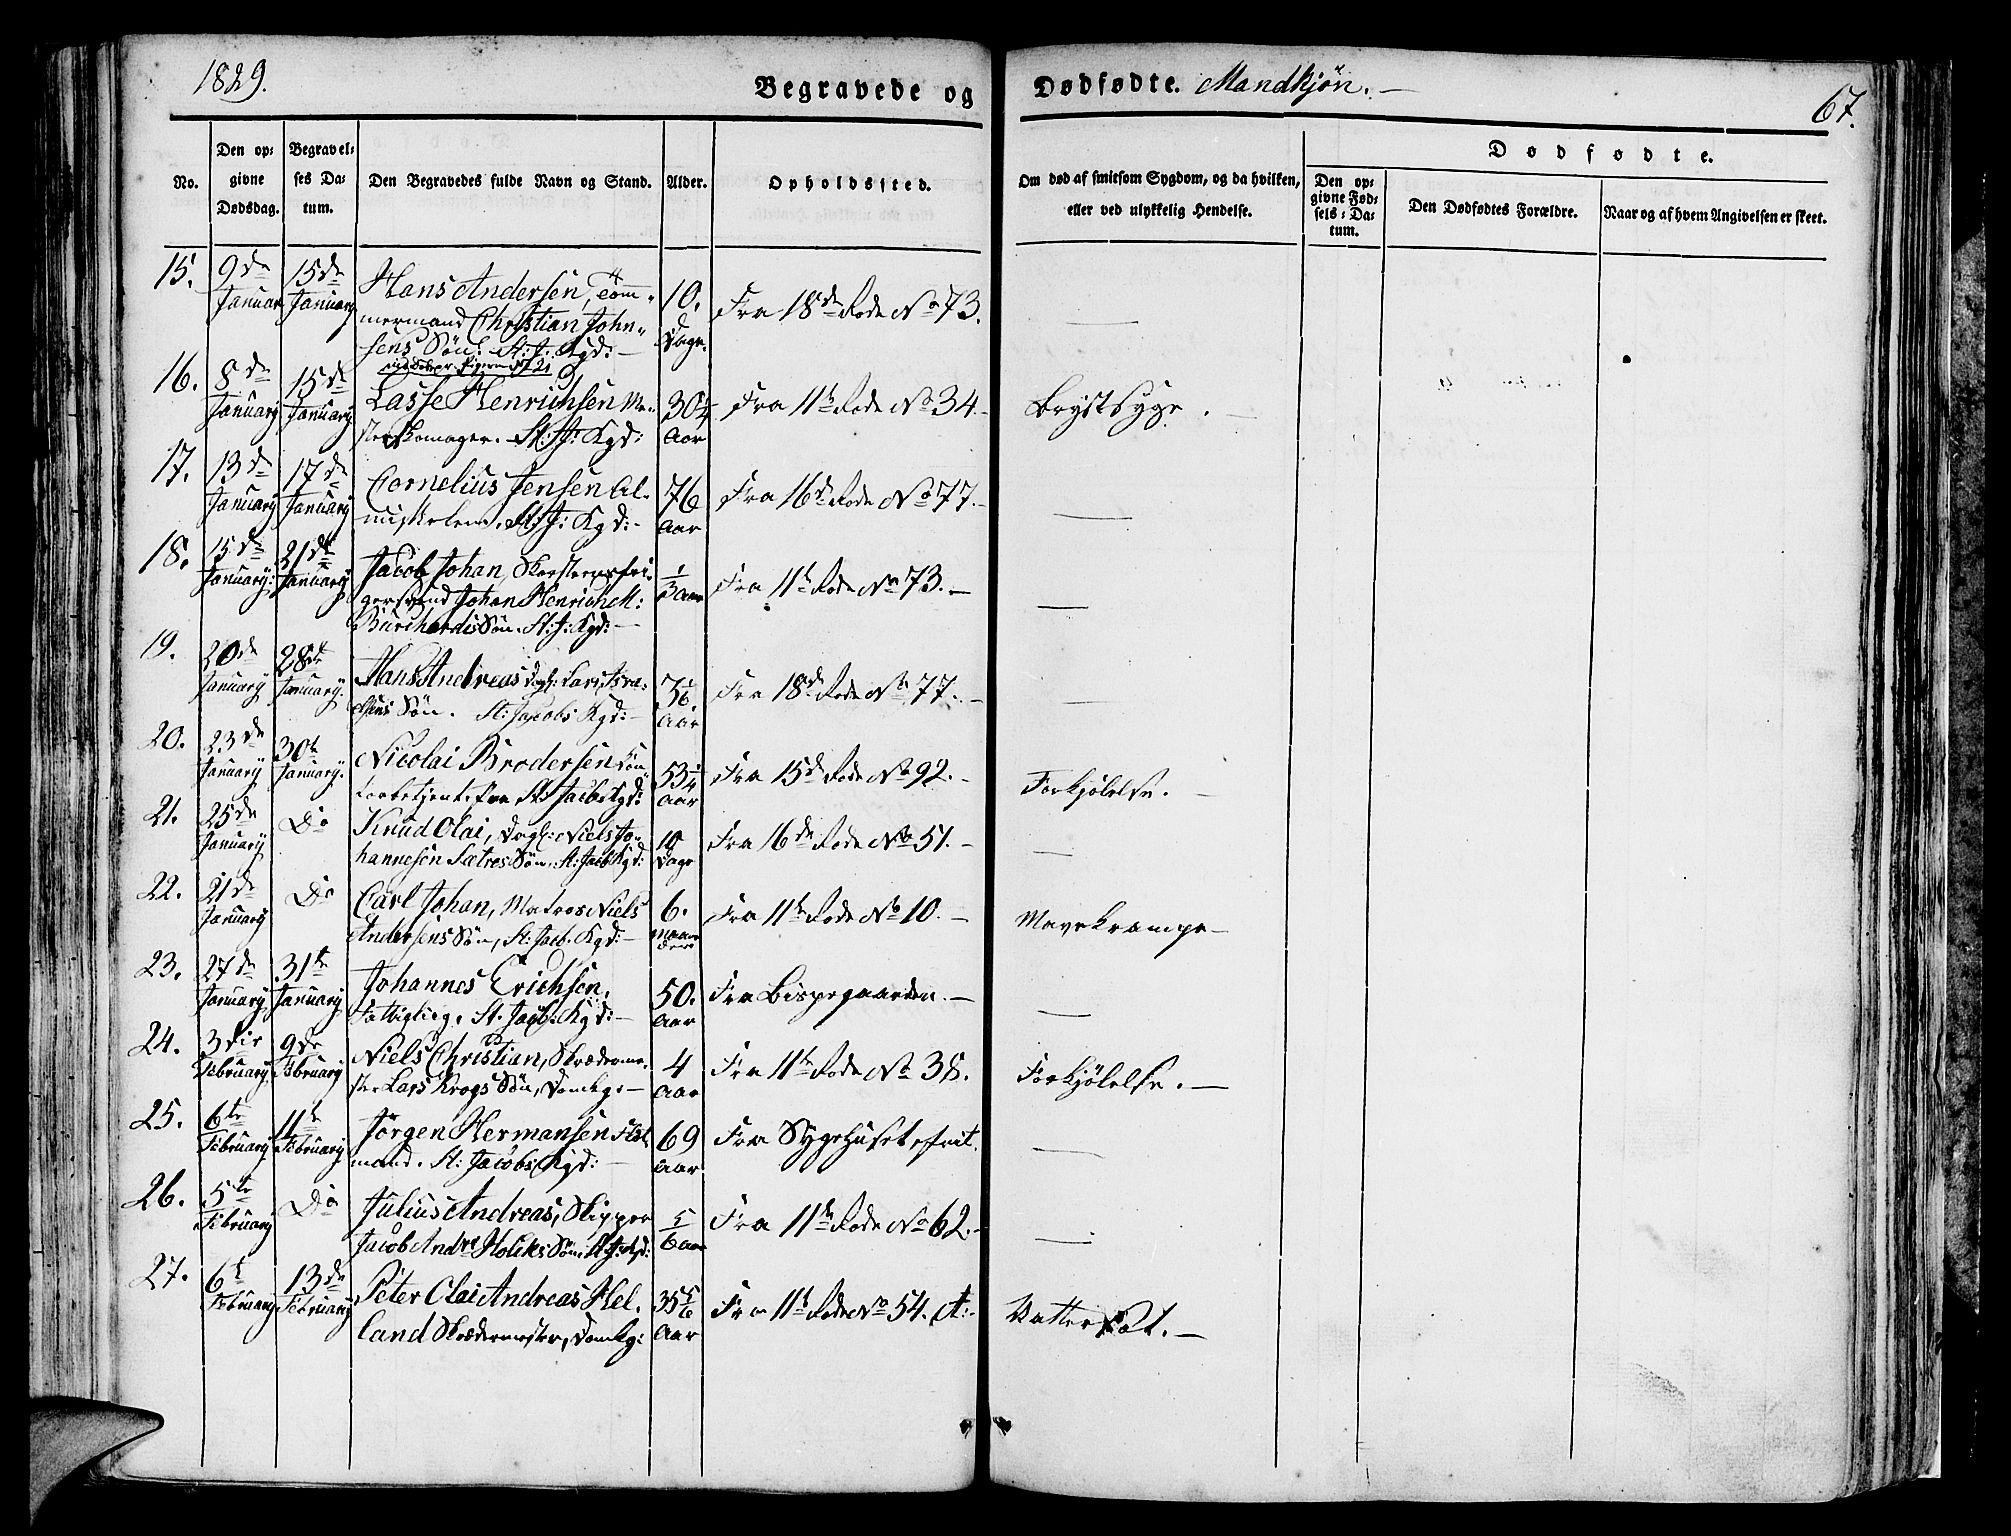 1829.
Begravede og Dødfødte. Mandkjön. —
67.
No.
Den op=
givne
Dødsdag.
Begravel=
ses Da=
tum.
Den Begravedes fulde Navn og Stand.
Alder.
Opholdssted.
Om død af smitsom Sygdom, og da hvilken,
eller ved ulykkelig Hendelse.
Dødfødte.
Den op=
givne Fød=
sels=Da=
tum.
Den Dødfødtes Forældre.
Naar og af hvem Angivelsen er skeet.
15. 9de Januar 15de January
Hans Andersen, Töm=
mermand Christian John=
sens Søn. St: J: Kgd: —
10. Dage
Fra 18de Rode No 73.
16. 8de January 15de January
Lasse Henrichsen Me=
sterskomager. St: J: Kgd:
30 1/4 Aar
Fra 11te Rode No 34. —
Brystsyge. —
17. 13de January 17de January
Cornelius Jensen Al=
misselem. St: J: Kgd: -
76 Aar
Fra 16de Rode No 77. —
18. 15de January: 21de January
Jacob Johan, Skorsteensfei=
gersvend Johan Henrich M:
Burchardts Søn. St: J: Kgd: —
1/3 Aar
Fra 11te Rode No 73. —
19. 20de January 28de January.
Hans Andreas Dagl: Lars Isra=
elsens Søn. St: Jacobs Kgd: —
3 1/6 Aar
Fra 18de Rode No 77. —
20. 23de January 30te January.
Nicolai Brodersen
fra St: Jacobs Kgd:
53 1/4 Aar
Fra 15de Rode No 92. -
Forkjölelse. —
21. 25de January Do
Knud Olai, Dagl: Niels Jo=
hannesen Sætres Søn, St: Jacb Kgd:
10 Dage
Fra 16de Rode No 51. —
22. 21de January Do
Carl Johan, Matros Niels
Andersens Søn, St: Jacb. Kgd: —
6. Maane
der
Fra 11te Rode No 10. —
Mavekrampe —
23. 27de January 31te January
Johannes Erichsen,
Fattiglem, St. Jacb: Kgd: —
50. Aar
Fra Bispegaarden. —
24. 3die February 9de February
Niels Christian, Skræderme=
ster Lars Krogs Søn, Domkge —
4 Aar
Fra 11te Rode No 38.
Forkjölelse. —
25. 6te February 11te February
Jörgen Hermansen
mand. St: Jacobs Kgd: —
69 Aar
Fra Sygehuset
26. 5te February Do
Julius Andreas, Skipper
Jacob Andr: Holcks Søn. St: J: Kgd:
5/6 Aar
Fra 11te Rode No 62. -
27. 6te February 13de February
Peter Olai Andreas Hel=
land Skrædermester, Domkg:
35 5/6 Aar
Fra 11te Rode No 54. A: -
Vattersot. —